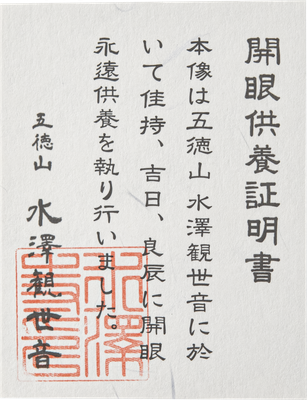 開眼供養証明書
本像は五徳山水澤観世音に於
いて佳持、吉日、良辰に開眼
永遠供養を執り行いました。
五徳山 水澤観世音